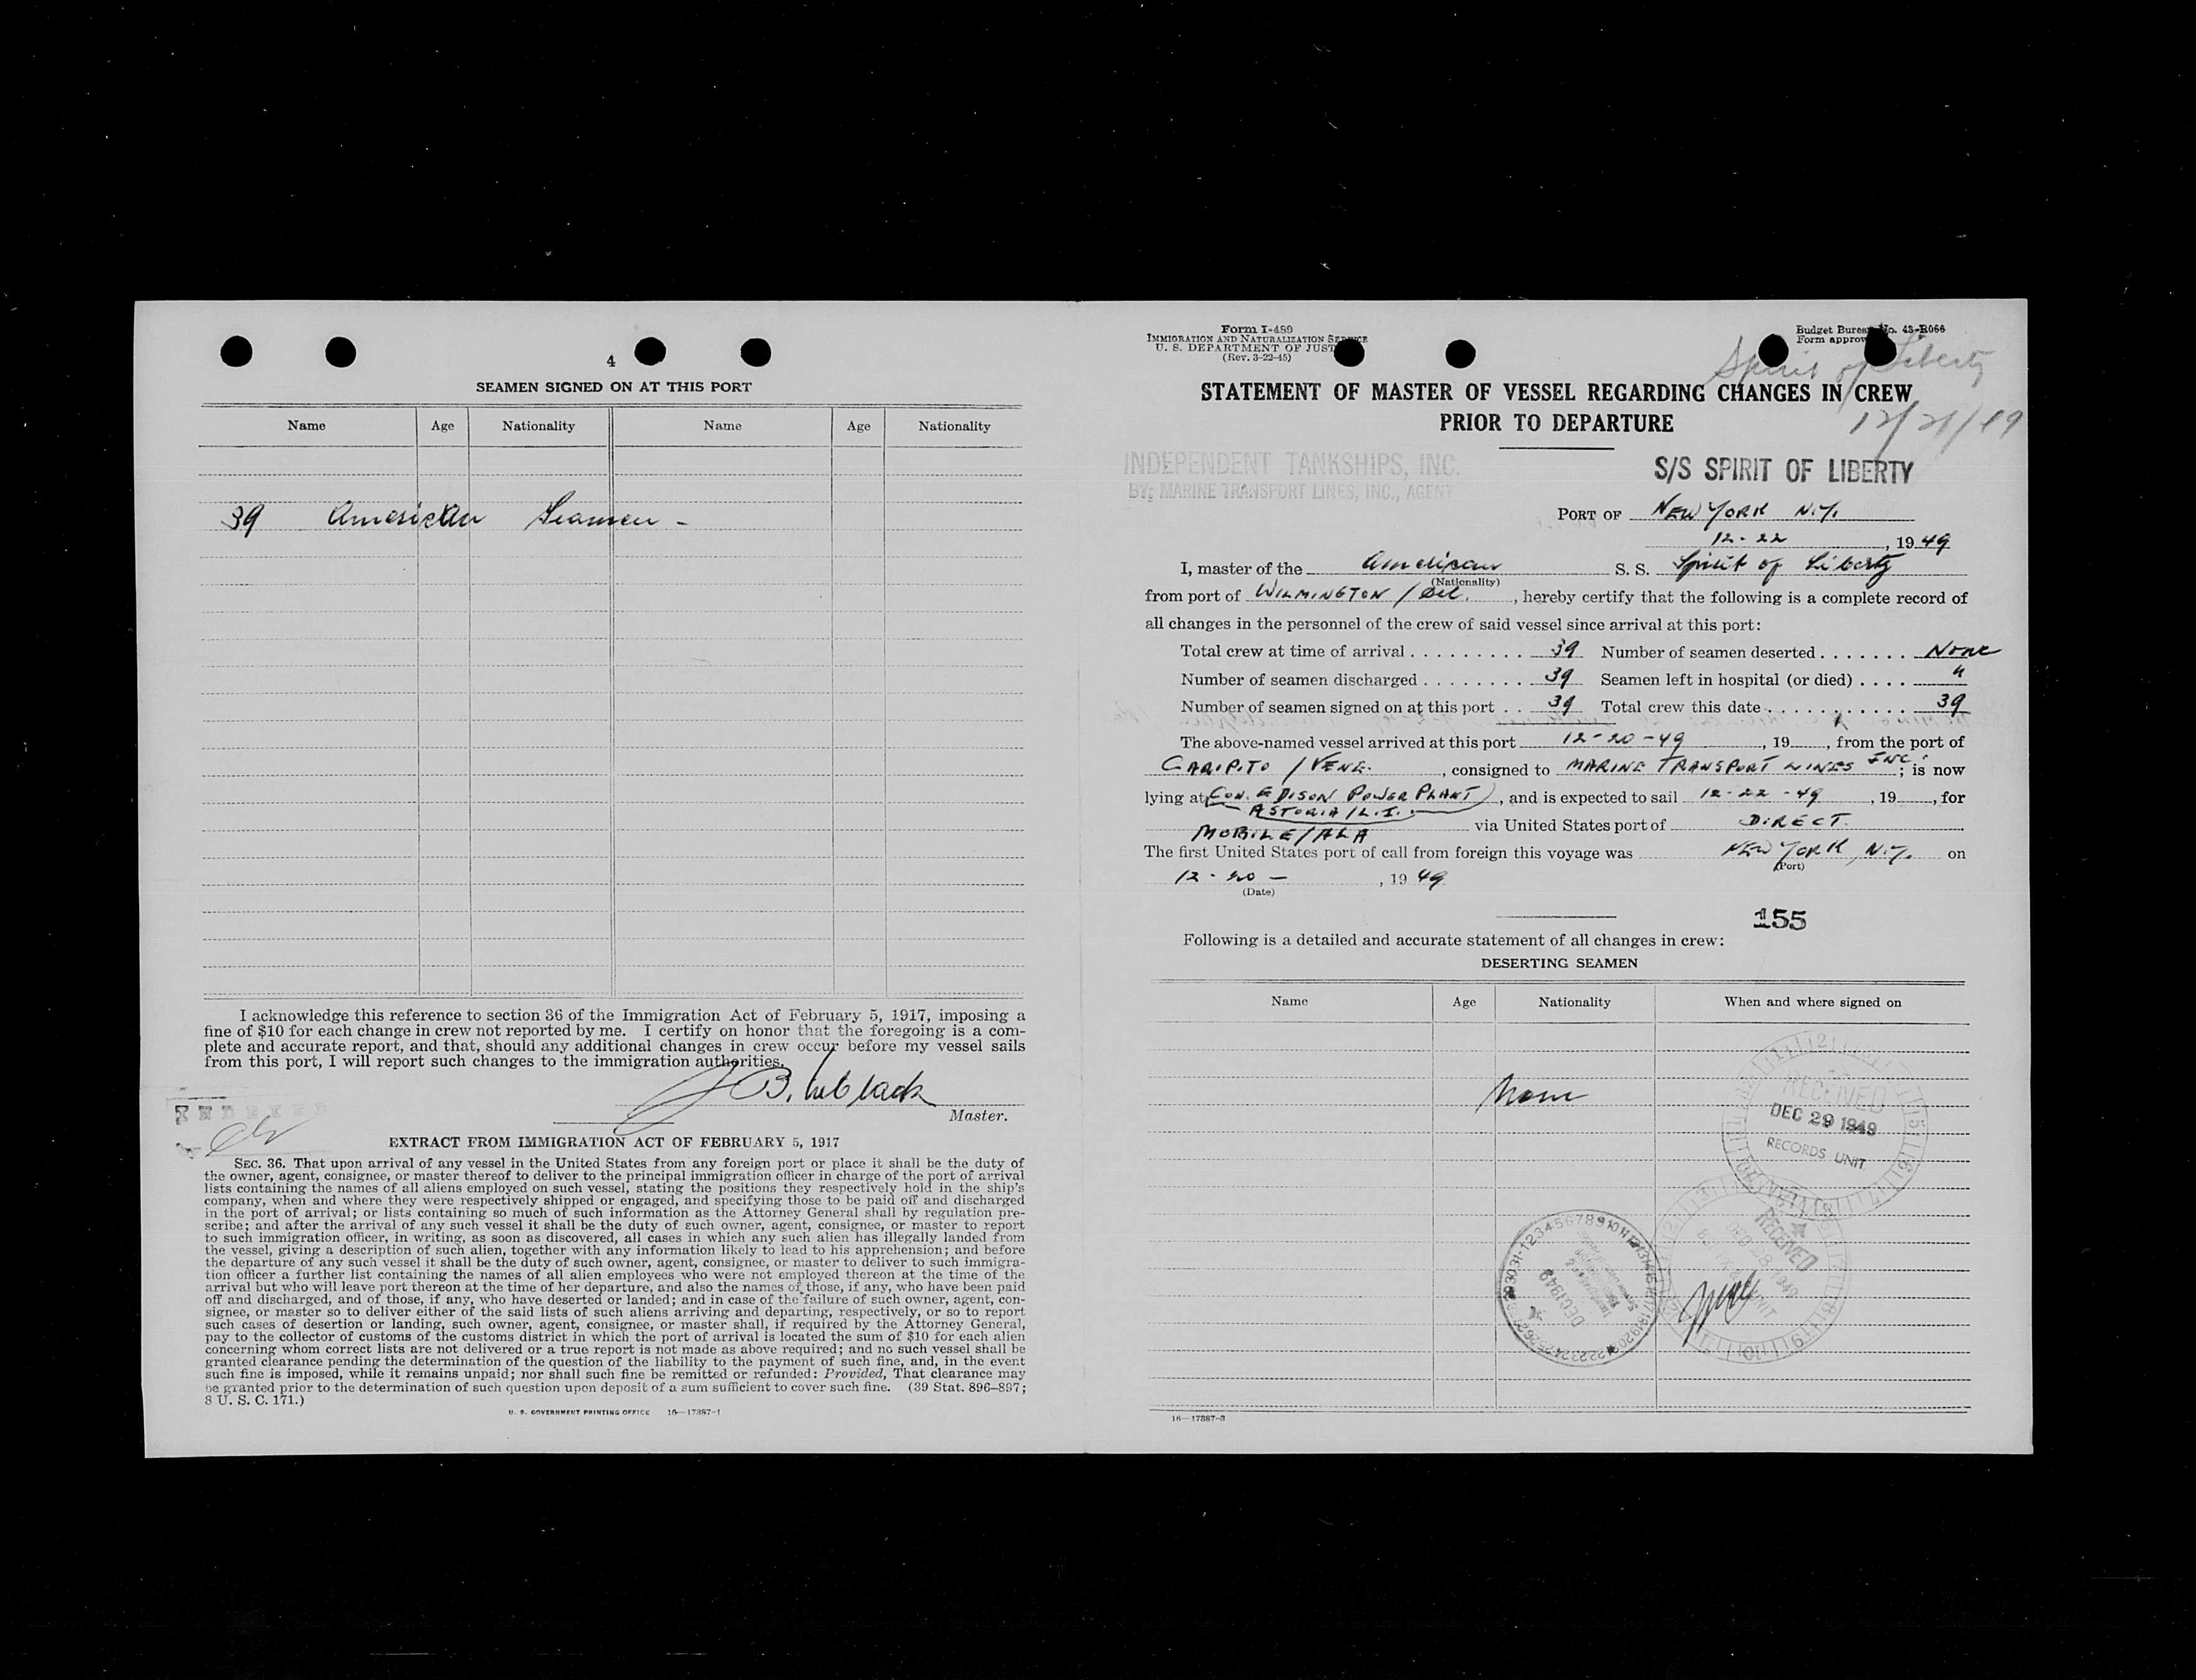 4
SEAMEN SIGNED ON AT THIS PORT
Name Age Nationality Name Age Nationality
39 American Seamen -
I acknowledge this reference to section 36 of the Immigration Act of February 5, 1917, imposing a
fine of $10 for each change in crew not reported by me. I certify on honor that the foregoing is a com-
plete and accurate report, and that, should any additional changes in crew occur before my vessel sails
from this port, I will report such changes to the immigration authorities.
J B.
Master.
INDEXED
EXTRACT FROM IMMIGRATION ACT OF FEBRUARY 5, 1917
SEC. 36. That upon arrival of any vessel in the United States from any foreign port or place it shall be the duty of
the owner, agent, consignee, or master thereof to deliver to the principal immigration officer in charge of the port of arrival
lists containing the names of all aliens employed on such vessel, stating the positions they respectively hold in the ship's
company, when and where they were respectively shipped or engaged, and specifying those to be paid off and discharged
in the port of arrival; or lists containing so much of such information as the Attorney General shall by regulation pre-
scribe; and after the arrival of any such vessel it shall be the duty of such owner, agent, consignee, or master to report
to such immigration officer, in writing, as soon as discovered, all cases in which any such alien has illegally landed from
the vessel, giving a description of such alien, together with any information likely to lead to his apprehension; and before
the departure of any such vessel it shall be the duty of such owner, agent, consignee, or master to deliver to such immigra-
tion officer a further list containing the names of all alien employees who were not employed thereon at the time of the
arrival but who will leave port thereon at the time of her departure, and also the names of those, if any, who have been paid
off and discharged, and of those, if any, who have deserted or landed; and in case of the failure of such owner, agent, con-
signee, or master so to deliver either of the said lists of such aliens arriving and departing, respectively, or so to report
such cases of desertion or landing, such owner, agent, consignee, or master shall, if required by the Attorney General,
pay to the collector of customs of the customs district in which the port of arrival is located the sum of $10 for each alien
concerning whom correct lists are not delivered or a true report is not made as above required; and no such vessel shall be
granted clearance pending the determination of the question of the liability to the payment of such fine, and, in the event
such fine is imposed, while it remains unpaid; nor shall such fine be remitted or refunded: Provided, That clearance may
be granted prior to the determination of such question upon deposit of a sum sufficient to cover such fine. (39 Stat. 896–897;
8 U. S. C. 171.)
U. S. GOVERNMENT PRINTING OFFICE 16—17387-1
Form I-489
IMMIGRATION AND NATURALIZATION SERVICE
U. S. DEPARTMENT OF JUST
(Rev. 3-22-45)
Budget Bureau No. 43-R066
Form approv
Spirit of Liberty
12/21/49
STATEMENT OF MASTER OF VESSEL REGARDING CHANGES IN CREW
PRIOR TO DEPARTURE
INDEPENDENT TANKSHIPS, INC.
BY: MARINE TRANSPORT LINES, INC., AGENT
S/S SPIRIT OF LIBERTY
PORT OF NEW YORK N.Y.
12-22, 1949
I, master of the American S. S. Spirit of Liberty
(Nationality)
from port of WILMINGTON / Del., hereby certify that the following is a complete record of
all changes in the personnel of the crew of said vessel since arrival at this port:
Total crew at time of arrival . . . . . . . . . 39 Number of seamen deserted . . . . . . . None
Number of seamen discharged . . . . . . . . 39 Seamen left in hospital (or died) . . . . "
Number of seamen signed on at this port . . 39 Total crew this date . . . . . . . . . . . 39
The above-named vessel arrived at this port 12-20-49, 19 , from the port of
CARIPITO / VENE., consigned to MARINE TRANSPORT LINES INC; is now
lying at (CON. EDISON POWER PLANT), and is expected to sail 12-22-49, 19 , for
ASTORIA / L.I.
MOBILE / ALA via United States port of DIRECT.
The first United States port of call from foreign this voyage was NEW YORK, N.Y. on
(Port)
12-20-, 1949
(Date)
155
Following is a detailed and accurate statement of all changes in crew:
DESERTING SEAMEN
Name Age Nationality When and where signed on
None
RECEIVED
DEC 29 1949
RECORDS UNIT
RECEIVED
DEC 28 1949
UNIT
DEC 1949
16—17387-3